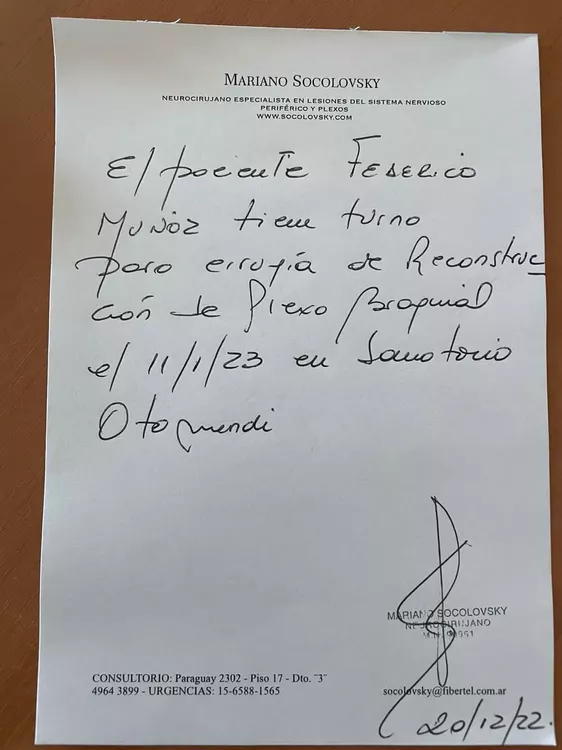 MARIANO SOCOLOVSKY
NEUROCIRUJANO ESPECIALISTA EN LESIONES DEL SISTEMA NERVIOSO
PERIFÉRICO Y PLEXOS
WWW.SOCOLOVSKY.COM
El paciente FEDERICO
MUÑOZ tiene turno
para cirugía de Reconstruc
ción de Plexo Braquial
el 11/1/23 en Sanatorio
Otamendi
MARIANO SOCOLOVSKY
NEUROCIRUJANO
M.N.
CONSULTORIO: Paraguay 2302 - Piso 17 - Dto. "3"
4964 3899 - URGENCIAS: 15-6588-1565
socolovsky@fibertel.com.ar
20/12/22.